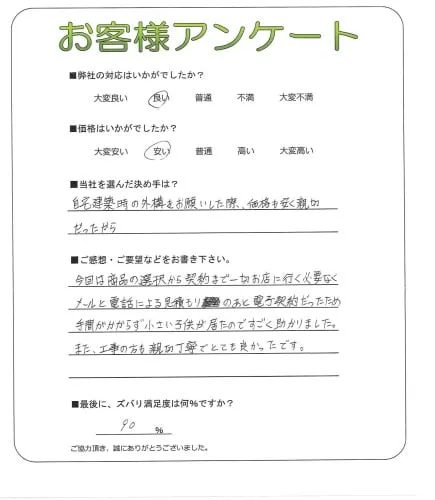 お客様アンケート
■弊社の対応はいかがでしたか？
大変良い 良い 普通 不満 大変不満
■価格はいかがでしたか？
大変安い 安い 普通 高い 大変高い
■当社を選んだ決め手は？
自宅建築時の外構をお願いした際、価格も安く親切
だったから
■ご感想・ご要望などをお書き下さい。
今回は商品の選択から契約まで一切お店に行く必要なく
メールと電話による見積もりのあと電子契約だったため
手間がかからず小さい子供が居たのですごく助かりました。
また、工事の方も親切丁寧でとても良かったです。
■最後に、ズバリ満足度は何％ですか？
90 %
ご協力頂き、誠にありがとうございました。